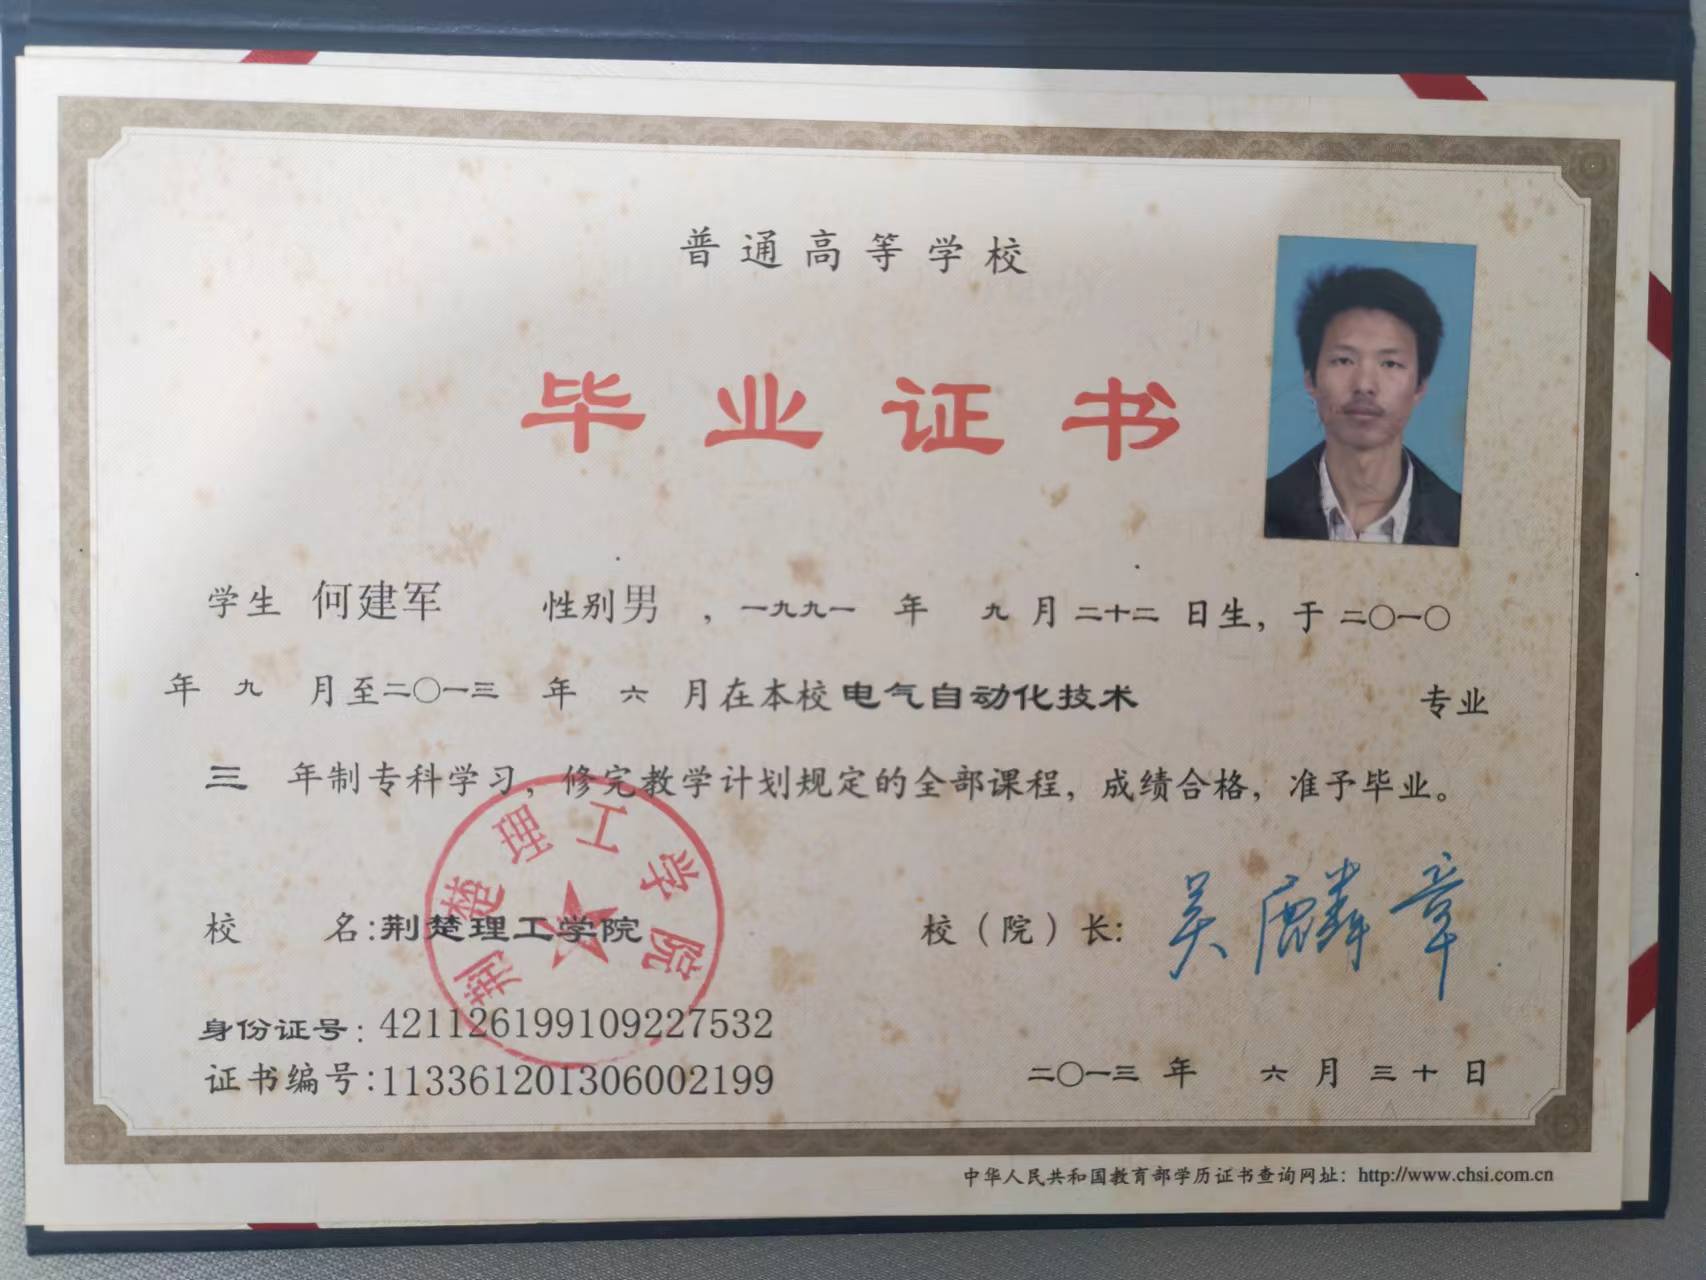 普通高等学校
毕业证书
学生 何建军 性别 男 ，一九九一 年 九 月 二十二 日生，于 二〇一〇
年 九 月至二〇一三 年 六 月在本校 电气自动化技术 专业
三 年制专科学习，修完教学计划规定的全部课程，成绩合格，准予毕业。
荆楚理工学院
校 名:荆楚理工学院 校（院）长: 吴麟章
身份证号: 421126199109227532
证书编号:113361201306002199 二〇一三 年 六 月 三十 日
中华人民共和国教育部学历证书查询网址: http://www.chsi.com.cn